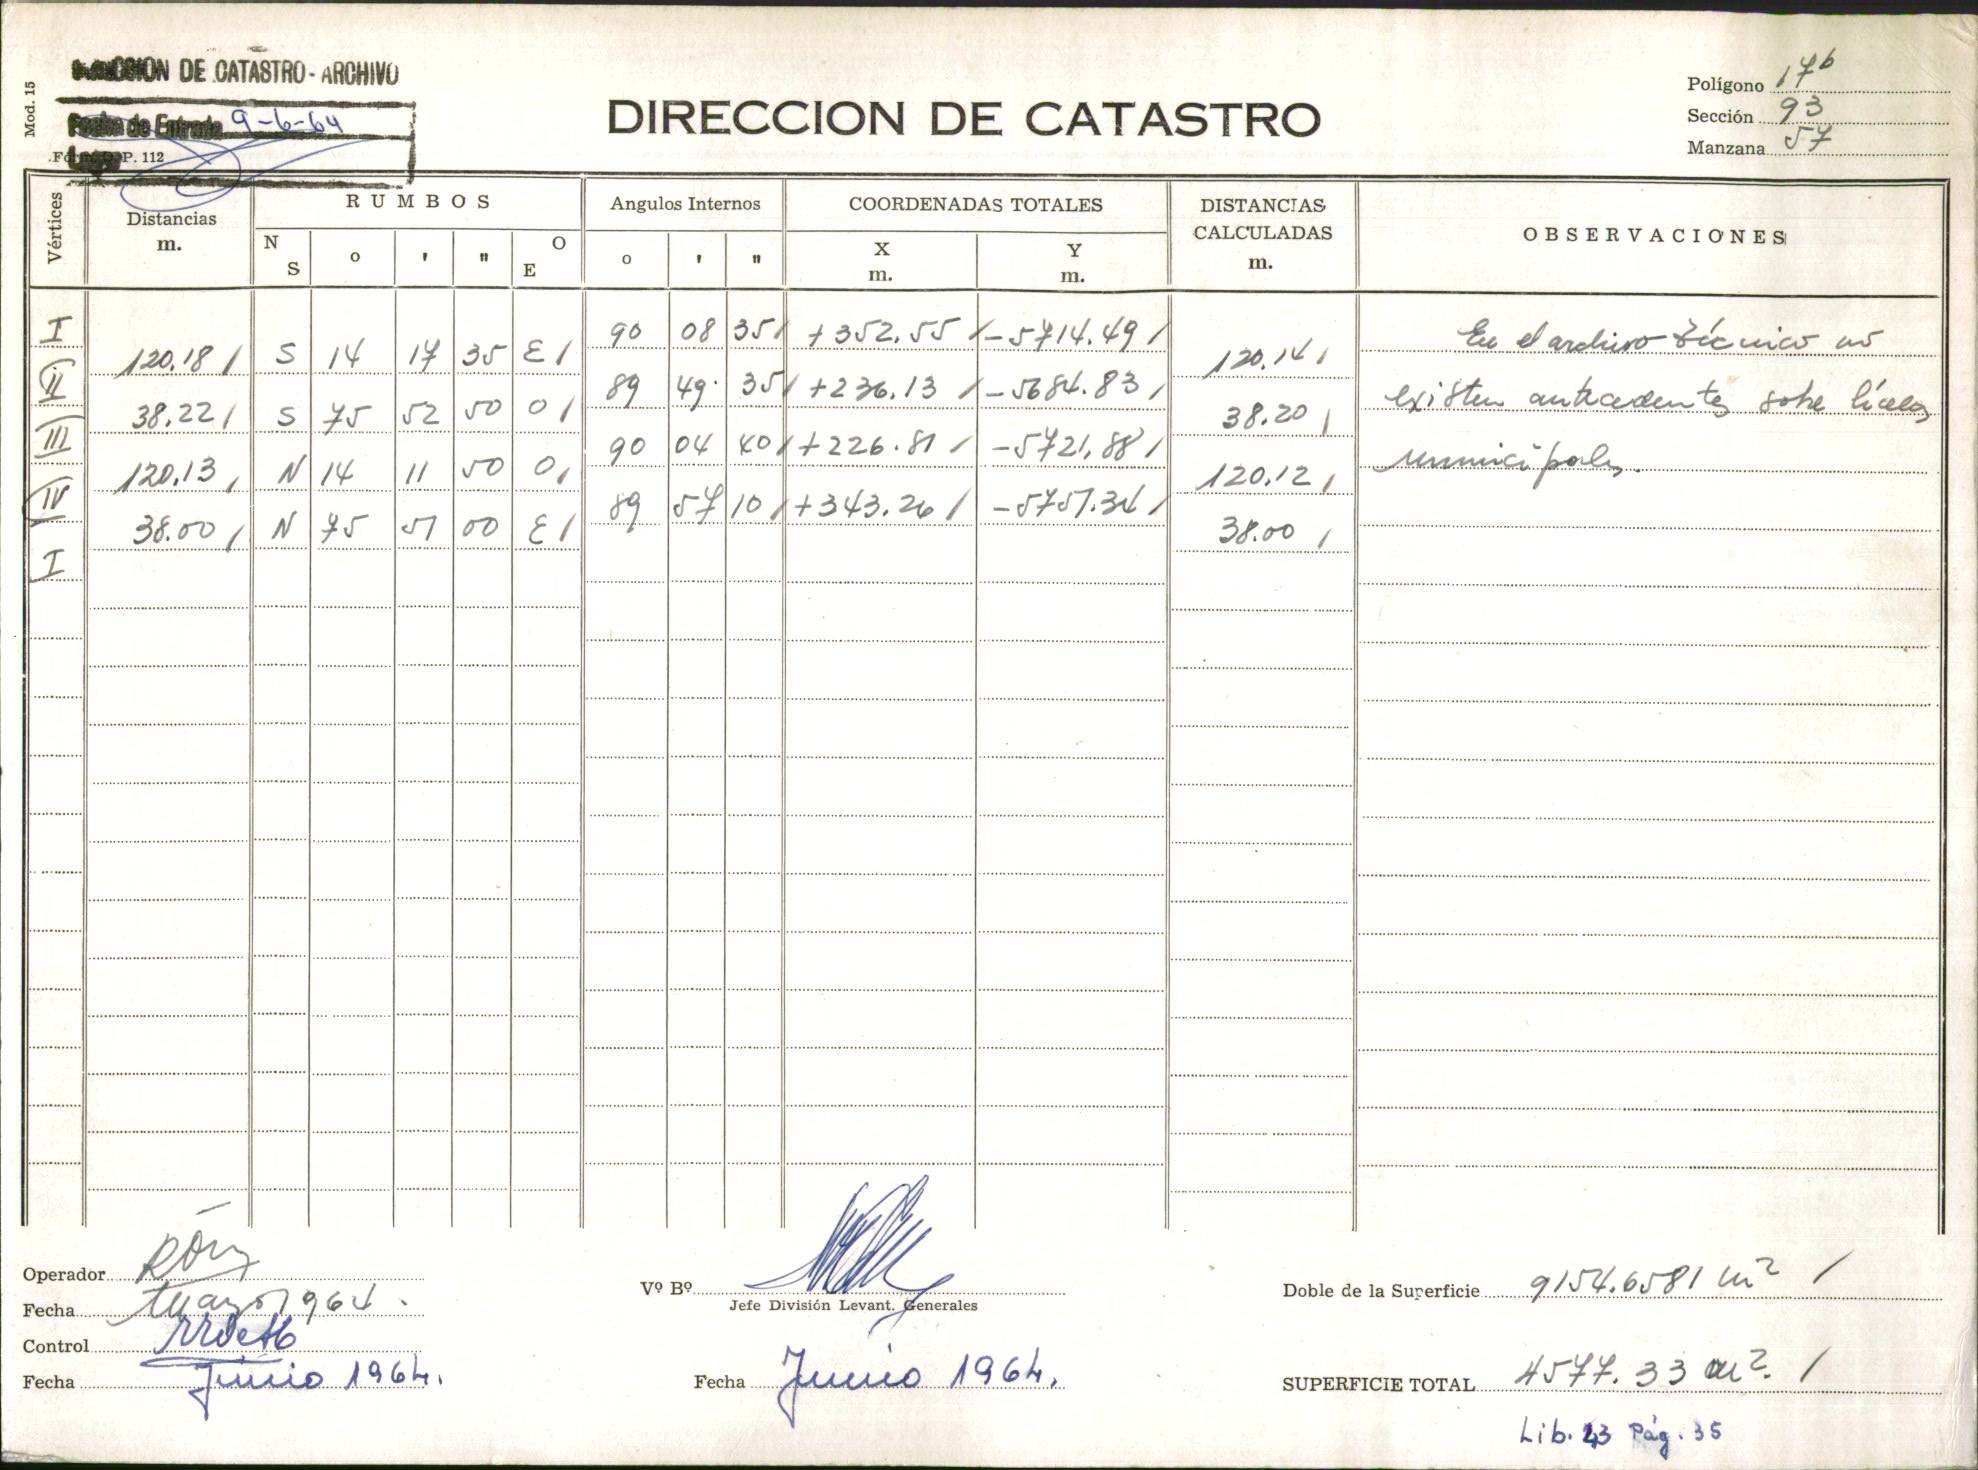 DIRECCION DE CATASTRO - ARCHIVO
Fecha de Entrada 9-6-64
Mod. 15
Form. O. P. 112
DIRECCION DE CATASTRO
Polígono 17b
Sección 93
Manzana 57
Vértices
Distancias m.
RUMBOS
N S ° ' " O E
Angulos Internos
° ' "
COORDENADAS TOTALES
X m. Y m.
DISTANCIAS CALCULADAS m.
OBSERVACIONES
I 90 08 35 +352.55 -5714.49
120.18 S 14 17 35 E 120.14
II 89 49 35 +236.13 -5684.83
38.22 S 75 52 50 O 38.20
III 90 04 40 +226.81 -5721.88
120.13 N 14 11 50 O 120.12
IV 89 57 10 +343.26 -5751.34
38.00 N 75 51 00 E 38.00
I
En el archivo técnico no
existen antecedentes sobre líneas
municipales.
Operador
Fecha Mayo 1964.
Control
Fecha Junio 1964.
Vº Bº
Jefe División Levant. Generales
Fecha Junio 1964.
Doble de la Superficie 9154.6581 m²
SUPERFICIE TOTAL 4577.33 m².
Lib. 43 Pág. 35